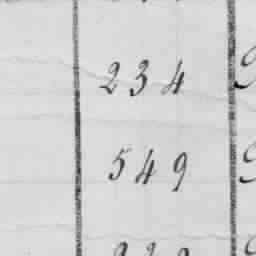 234
549